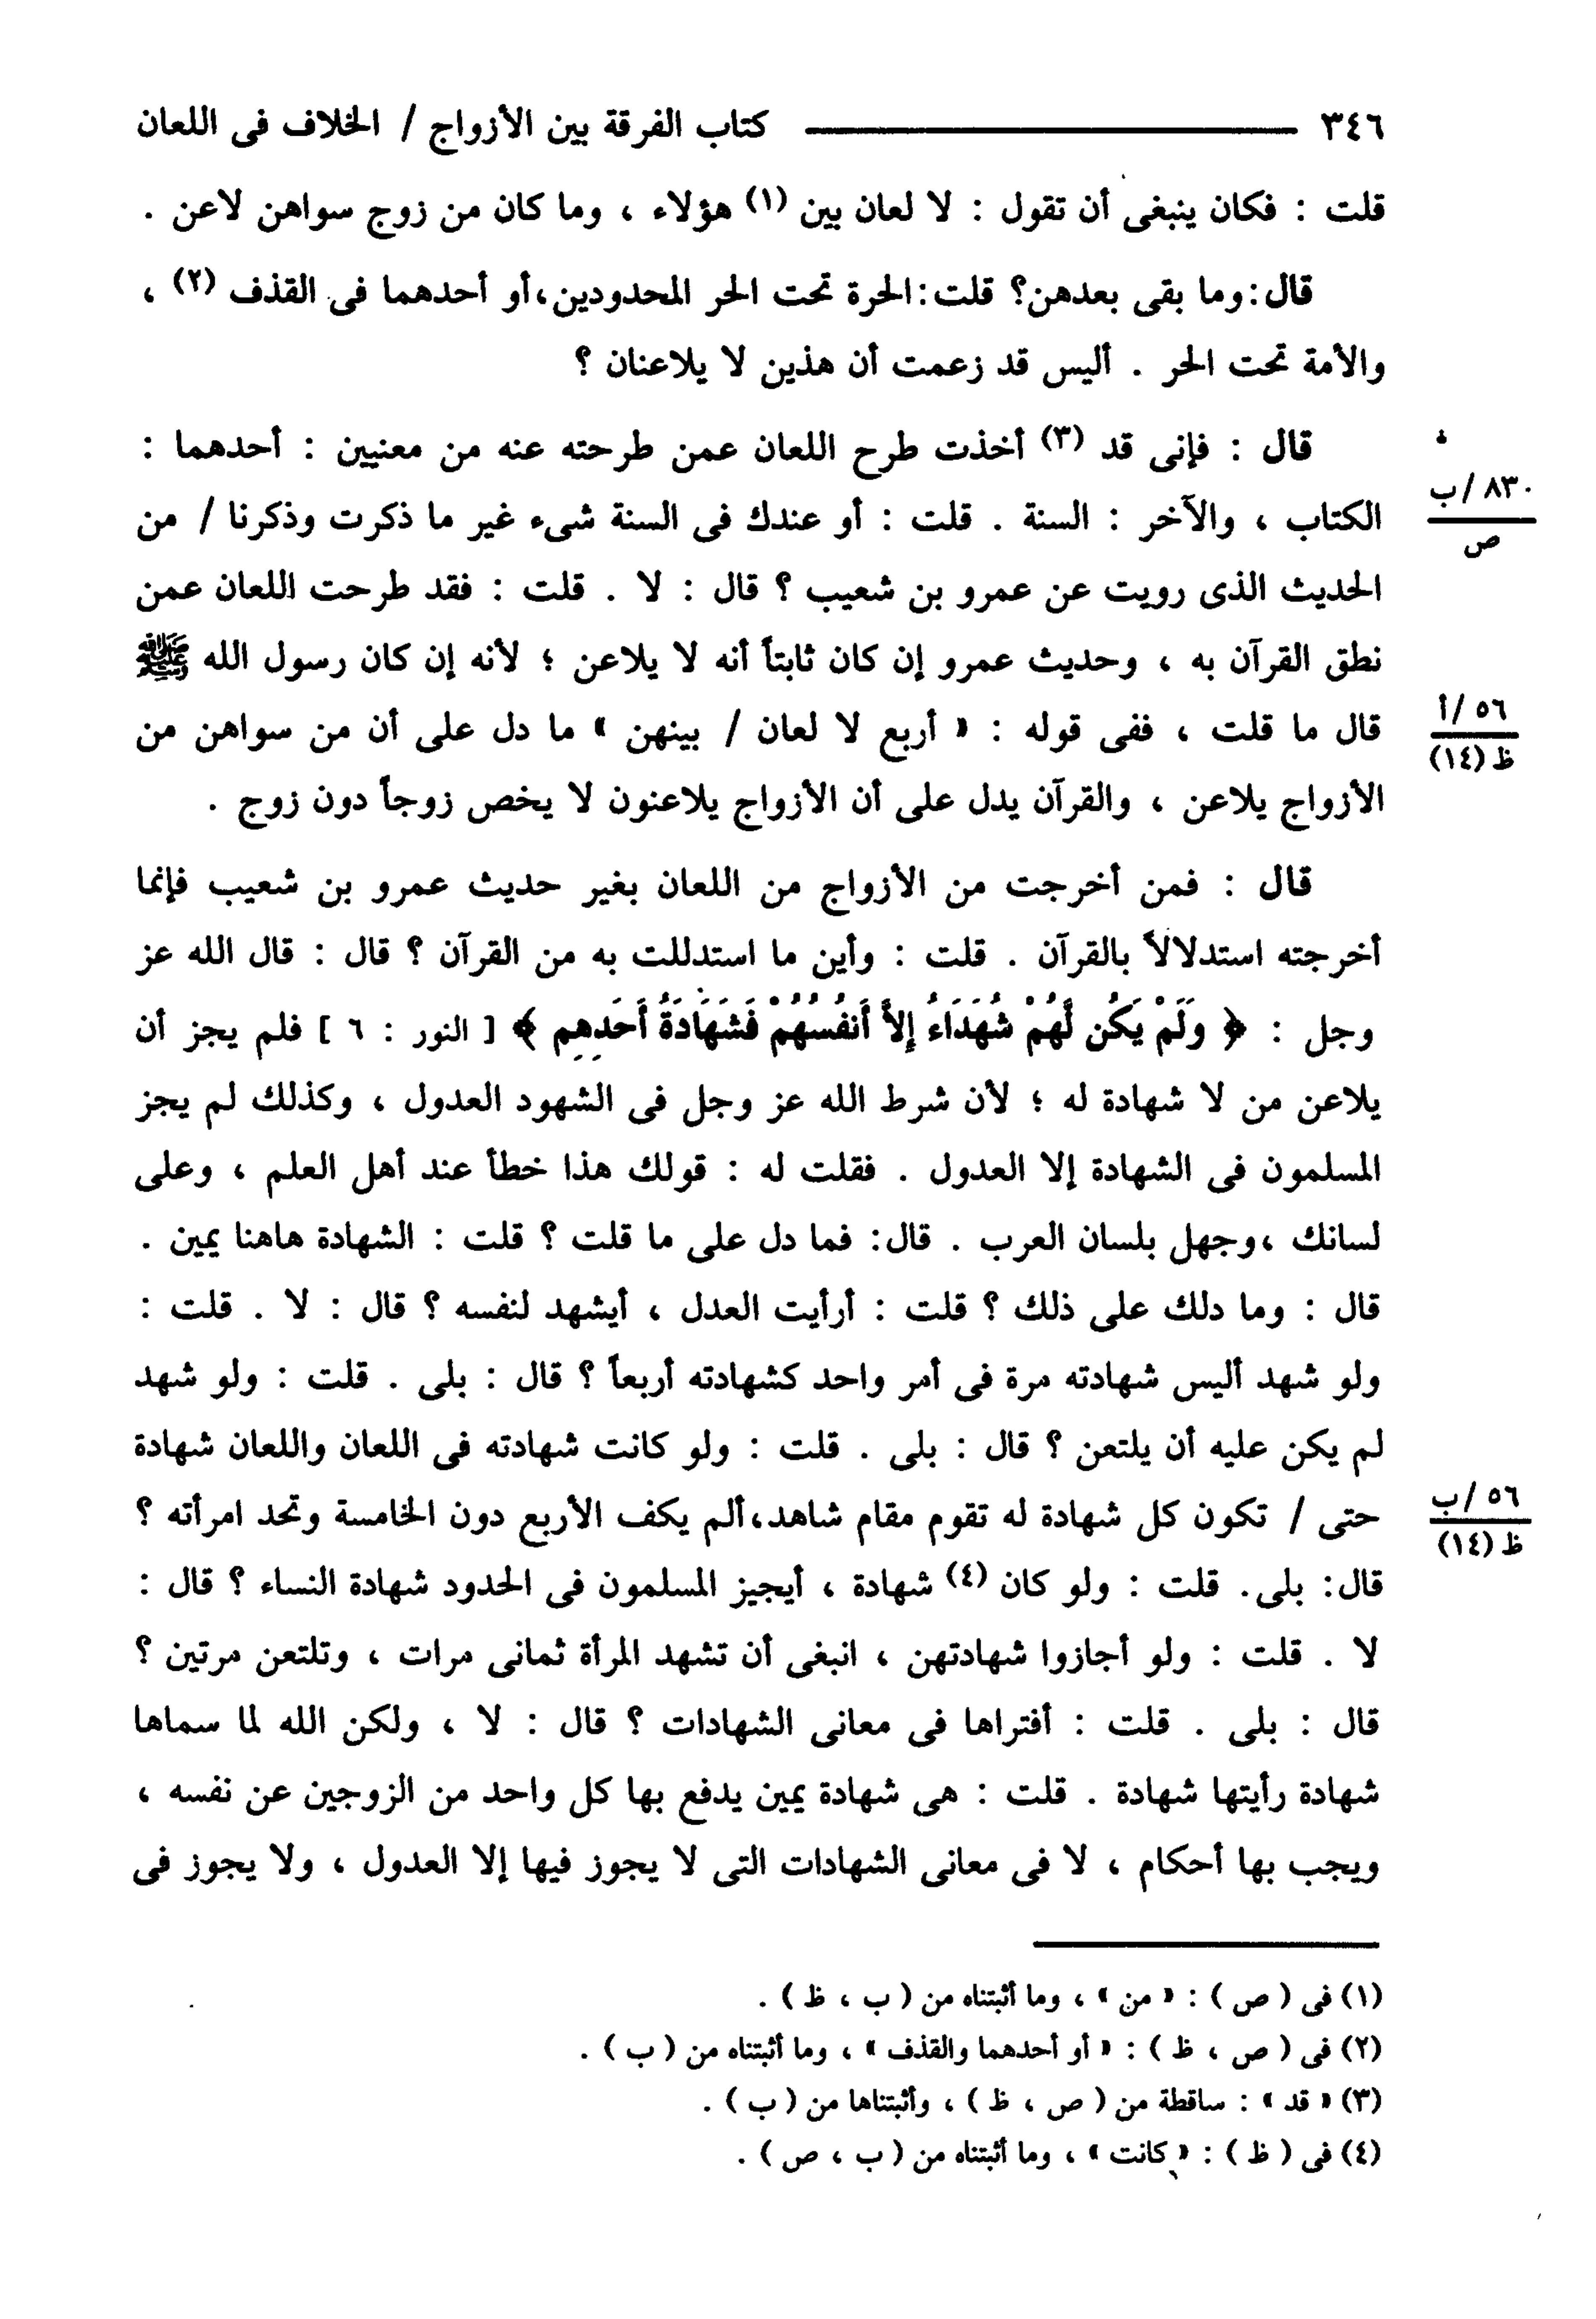 ٣٤٦ كتاب الفرقة بين الأزواج / الخلاف فى اللعان
قلت : فكان ينبغى أن تقول : لا لعان بين (١) هؤلاء ، وما كان من زوج سواهن لاعن .
قال:وما بقى بعدهن؟ قلت:الحرة تحت الحر المحدودين،أو أحدهما فى القذف (٢) ،
والأمة تحت الحر . أليس قد زعمت أن هذين لا يلاعنان ؟
قال : فإنى قد (٣) أخذت طرح اللعان عمن طرحته عنه من معنيين : أحدهما :
٨٣٠/ب
ص
الكتاب ، والآخر : السنة . قلت : أو عندك فى السنة شىء غير ما ذكرت وذكرنا / من
الحديث الذى رويت عن عمرو بن شعيب ؟ قال : لا . قلت : فقد طرحت اللعان عمن
نطق القرآن به ، وحديث عمرو إن كان ثابتاً أنه لا يلاعن ؛ لأنه إن كان رسول الله ﷺ
٥٦/أ
ظ(١٤)
قال ما قلت ، ففى قوله : « أربع لا لعان / بينهن » ما دل على أن من سواهن من
الأزواج يلاعن ، والقرآن يدل على أن الأزواج يلاعنون لا يخص زوجاً دون زوج .
قال : فمن أخرجت من الأزواج من اللعان بغير حديث عمرو بن شعيب فإنما
أخرجته استدلالاً بالقرآن . قلت : وأين ما استدللت به من القرآن ؟ قال : قال الله عز
وجل : ﴿ وَلَمْ يَكُن لَّهُمْ شُهَدَاءُ إِلاَّ أَنفُسُهُمْ فَشَهَادَةُ أَحَدِهِم ﴾ [ النور : ٦ ] فلم يجز أن
يلاعن من لا شهادة له ؛ لأن شرط الله عز وجل فى الشهود العدول ، وكذلك لم يجز
المسلمون فى الشهادة إلا العدول . فقلت له : قولك هذا خطأ عند أهل العلم ، وعلى
لسانك ،وجهل بلسان العرب . قال: فما دل على ما قلت ؟ قلت : الشهادة هاهنا يمين .
قال : وما دلك على ذلك ؟ قلت : أرأيت العدل ، أيشهد لنفسه ؟ قال : لا . قلت :
ولو شهد أليس شهادته مرة فى أمر واحد كشهادته أربعاً ؟ قال : بلى . قلت : ولو شهد
لم يكن عليه أن يلتعن ؟ قال : بلى . قلت : ولو كانت شهادته فى اللعان واللعان شهادة
٥٦/ب
ظ(١٤)
حتى / تكون كل شهادة له تقوم مقام شاهد،ألم يكف الأربع دون الخامسة وتحد امرأته ؟
قال: بلى. قلت : ولو كان (٤) شهادة ، أيجيز المسلمون فى الحدود شهادة النساء ؟ قال :
لا . قلت : ولو أجازوا شهادتهن ، انبغى أن تشهد المرأة ثمانى مرات ، وتلتعن مرتين ؟
قال : بلى . قلت : أفتراها فى معانى الشهادات ؟ قال : لا ، ولكن الله لما سماها
شهادة رأيتها شهادة . قلت : هى شهادة يمين يدفع بها كل واحد من الزوجين عن نفسه ،
ويجب بها أحكام ، لا فى معانى الشهادات التى لا يجوز فيها إلا العدول ، ولا يجوز فى
(١) فى ( ص ) : « من » ، وما أثبتناه من ( ب ، ظ ) .
(٢) فى ( ص ، ظ ) : « أو أحدهما والقذف » ، وما أثبتناه من ( ب ) .
(٣) « قد » : ساقطة من ( ص ، ظ ) ، وأثبتناها من ( ب ) .
(٤) فى ( ظ ) : « كانت » ، وما أثبتناه من ( ب ، ص ) .